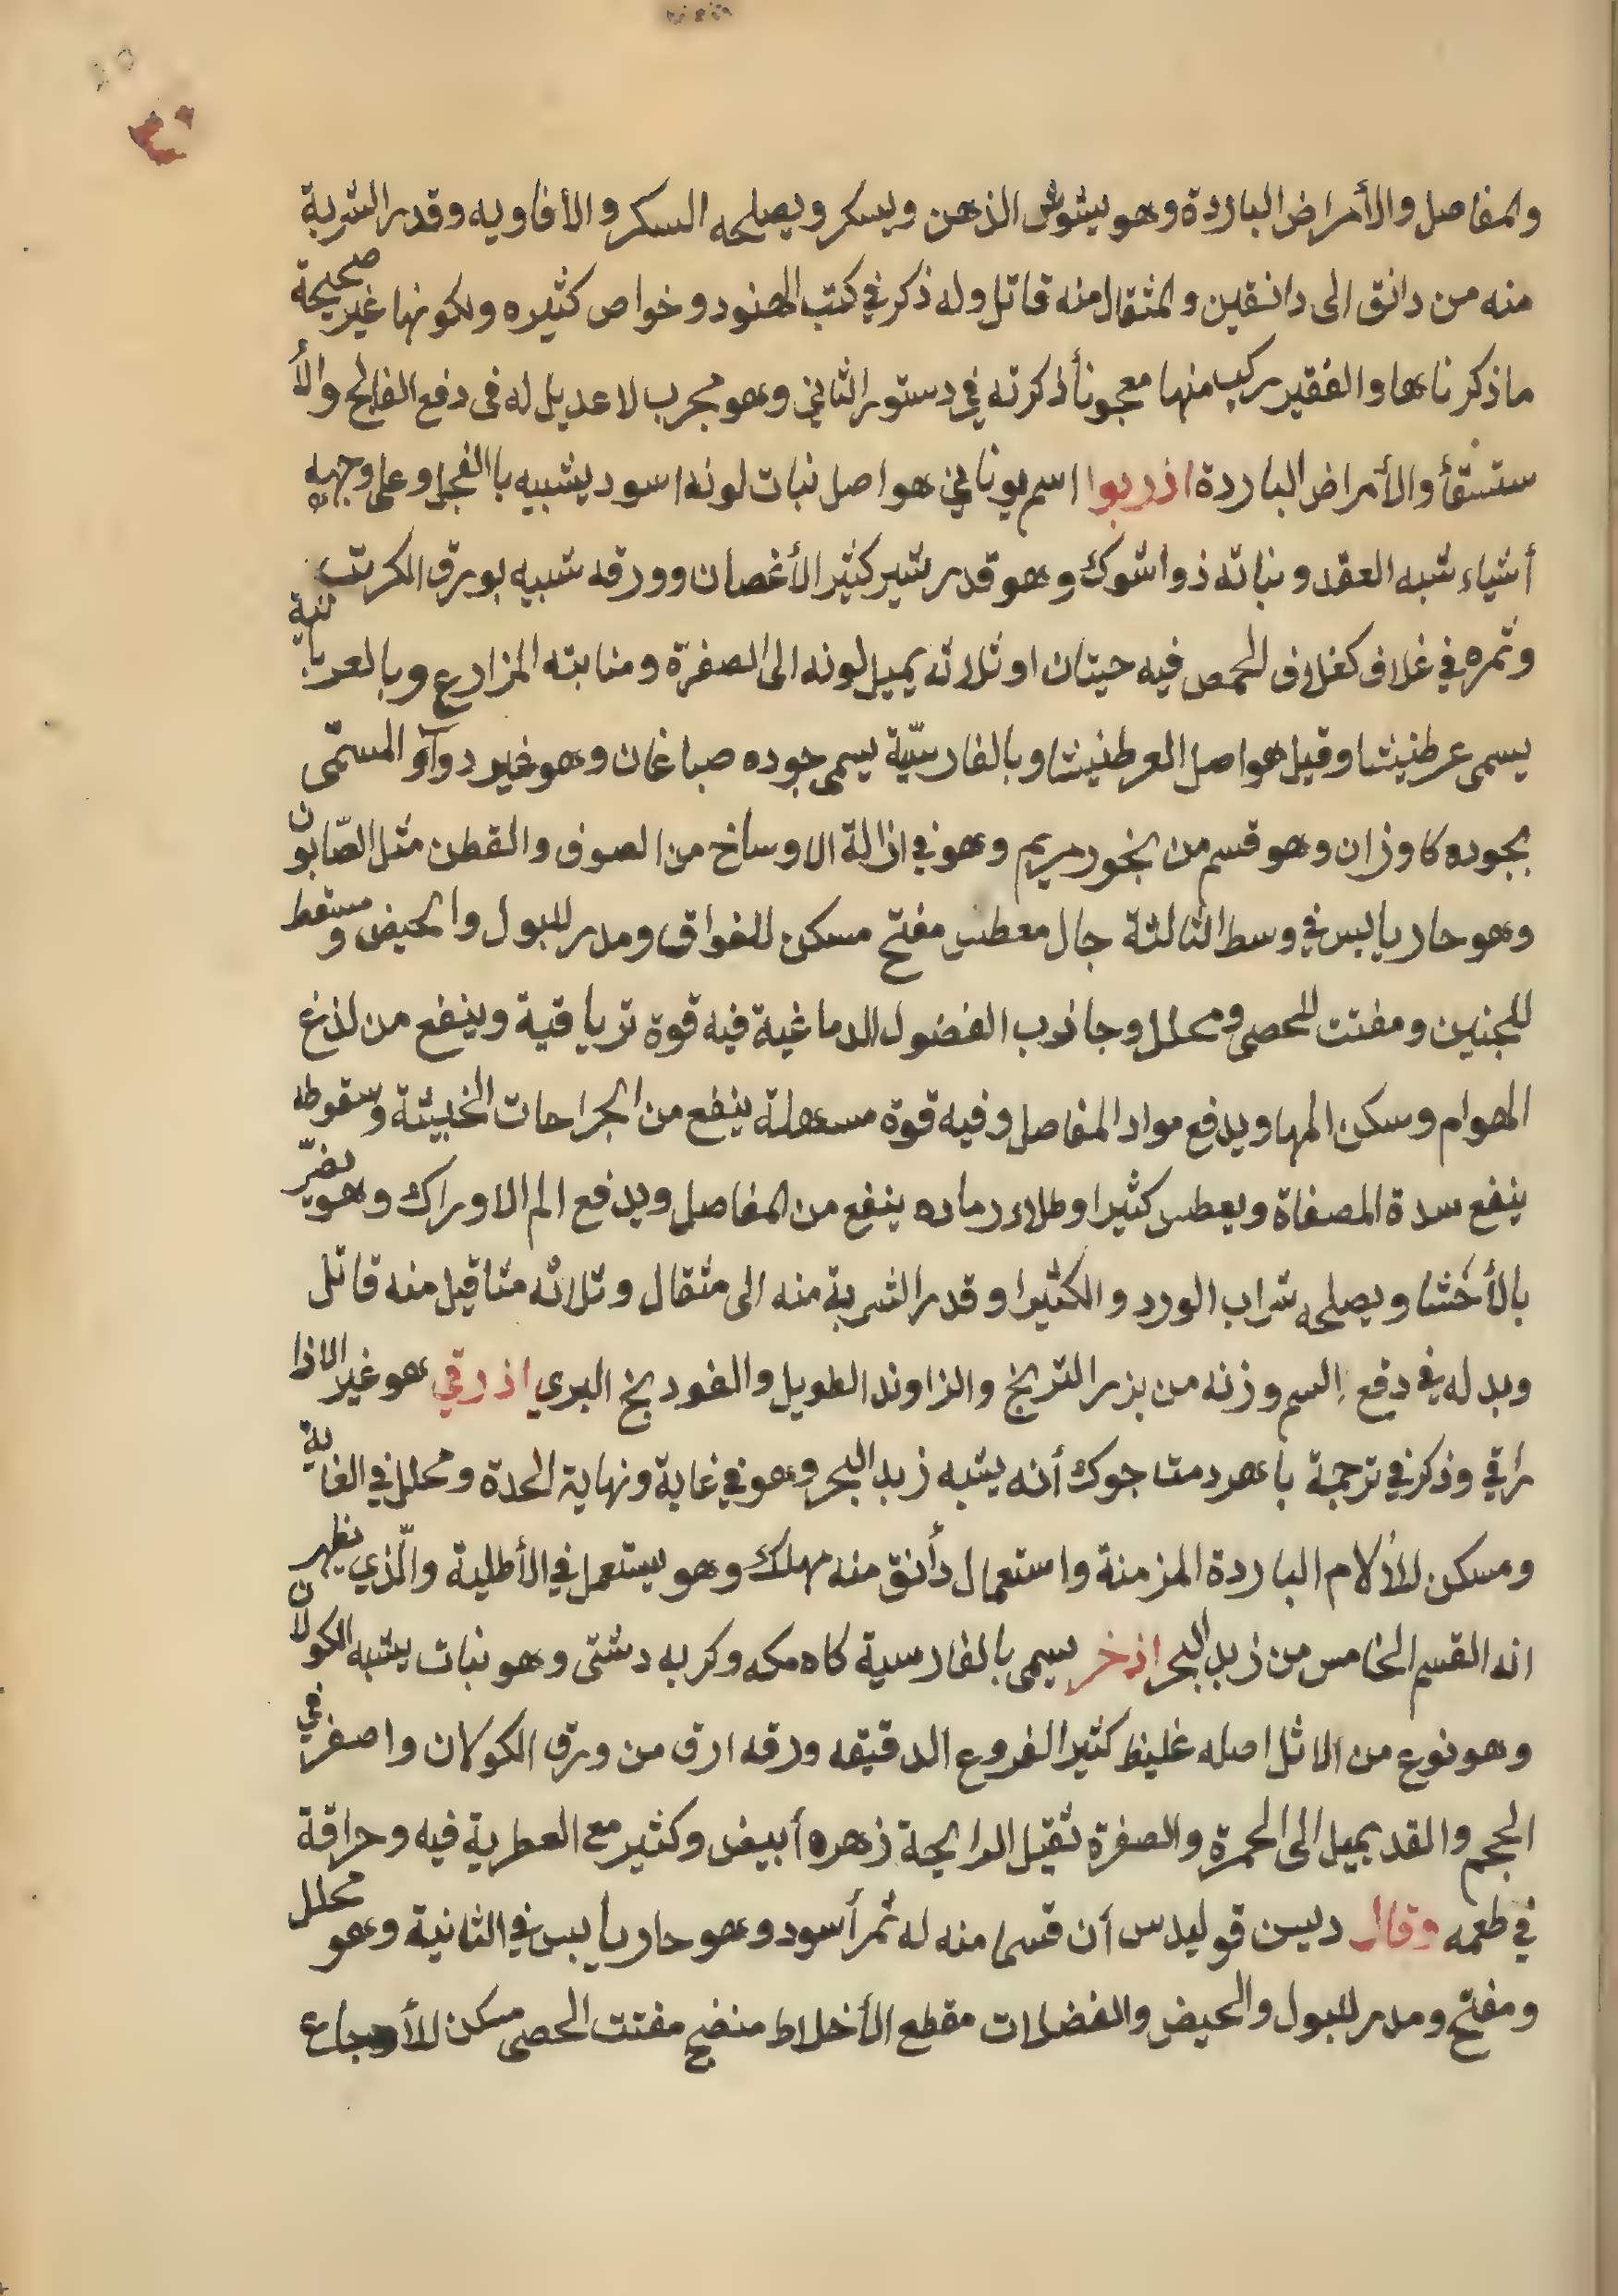 ٣٠
والمفاصل والأمراض الباردة وهو يشوش الذهن ويسكر ويصلحه السكر والأفاويه وقدر الشربة
منه من دانق الى دانقين والمثقال منه قاتل وله ذكر في كتب الهنود وخواص كثيره ولكونها غير صحيحة
ما ذكرناها والفقير ركب منها معجونأ ذكرته في دستور الثاني وهو مجرب لا عديل له فى دفع الفالج والأ
ستسقأ والأمراض الباردة اذربوا اسم يوناني هو اصل نبات لونه اسود يشبيه باالفجل وعلى وجهه
أشياء شبه العقد ونباته ذوا شوك وهو قدر شبر كثير الأغصان وورقه شبيه بورق الكرنب
وثمره في غلاف كغلاف الحمص فيه حبتان او ثلاثه يميل لونه الى الصفرة ومنابته المزارع وبالعربا نية
يسمى عرطنيثا وقيل هو اصل العرطنيثا وبالفارسيّة يسمى جوده صباغان وهو غير دوآو المسمّى
بجوده كاوزان وهو قسم من بخور مريم وهو في ازالة الاوساخ من الصوف والقطن مثل الصّابون
وهو حار يابس في وسط الثالثة جال معطس مفتح مسكن للفواق ومدر للبول والحيض ومسقط
للجنين ومفتت للحصى ومحلل وجاذب الفضول الدماغية فيه قوة ترياقية وينفع من لذغ
الهوام وسكن المها ويدفع مواد المفاصل وفيه قوة مسهلة ينفع من الجراحات الخبيثة وسقوطه
ينفع سدة المصفاة ويعطس كثيرا وطلاء رماده ينفع من المفاصل ويدفع الم الاوراك وهو يضرّ
بالأخشا ويصلحه شراب الورد والكثيرا وقدر الشربة منه الى مثقال وثلاثه مثاقيل منه قاتل
وبدله في دفع السم وزنه من بزر الترنج والزاوند الطويل والفودنج البري اذرقي هو غير الاذا
راقي وذكر في ترجمة باهردمت جوك أنه يشبه زبد البحر وهو في غاية ونهاية الحدة ومحلل في الغاية
ومسكن للألام الباردة المزمنة واستعمال دأنق منه مهلك وهو يستعمل في الأطلية والّذي يظهر
انه القسم الخامس من زبد البحر اذخر يسمى بالفارسية كاه مكه وكربه دشتى وهو نبات يشبه الكولان
وهو نوع من الاثل اصله غليظ كثير الفروع الدقيقه ورقه ارق من ورق الكولان واصغر في
الحجم والقد يميل الى الحمرة والصفرة ثقيل الرايحة زهره أبيض وكثير مع العطرية فيه وحراقة
في طعمه وقال ديسن قوليدس أن قسما منه له ثمر أسود وهو حار يابس في الثانية وهو محلل
ومفتح ومدر للبول والحيض والفضلات مقطع الأخلاط منضج مفتت الحصى مسكن للأوجاع